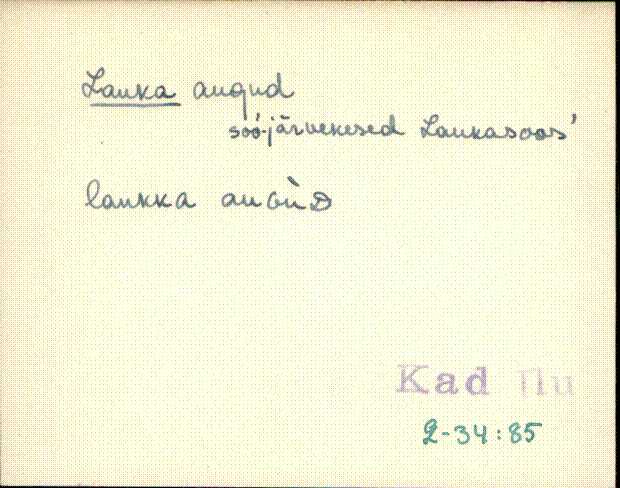 Lauka augud
söö-järvekesed Laukasoos'
laukka
Kad
2-34:85